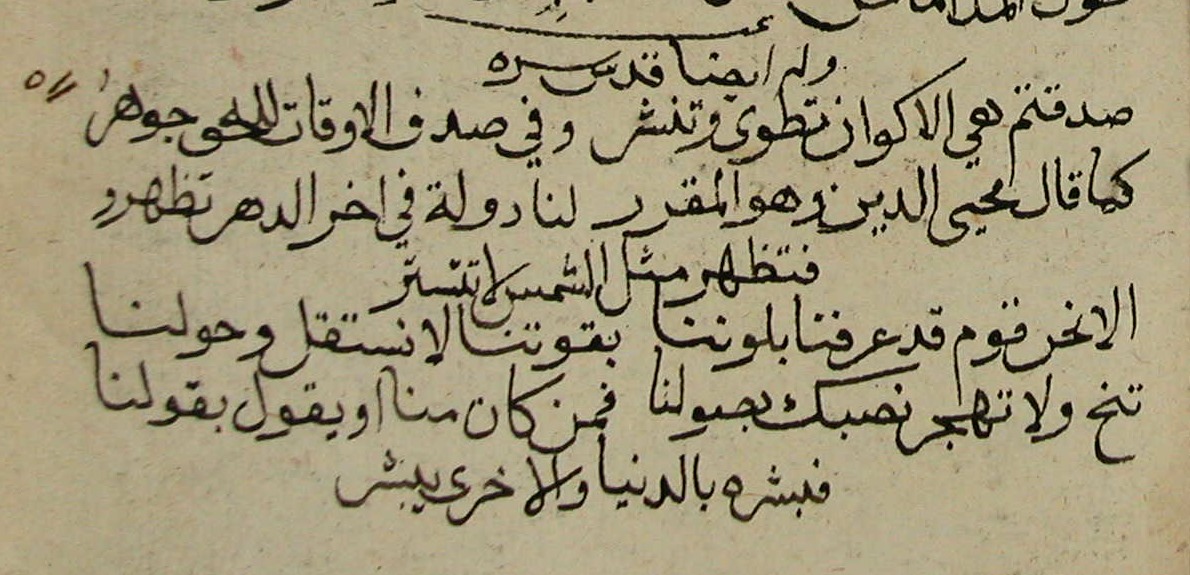 وله ايضا قدس سره
صدقتم هي الاكوان تطوى وتنشر وفي صدف الاوقات للحق جوهر
كما قال محيى الدين وهو المقرر لنا دولة في اخر الدهر تظهر
فتظهر مثل الشمس لا تتستر
الا نحن قوم قد عرفنا بلوننا بقوتنا لا نستقل وحولنا
تنح ولا تهجر نصبك بصولنا فمن كان منا او يقول بقولنا
فبشره بالدنيا والاخرى يبشر